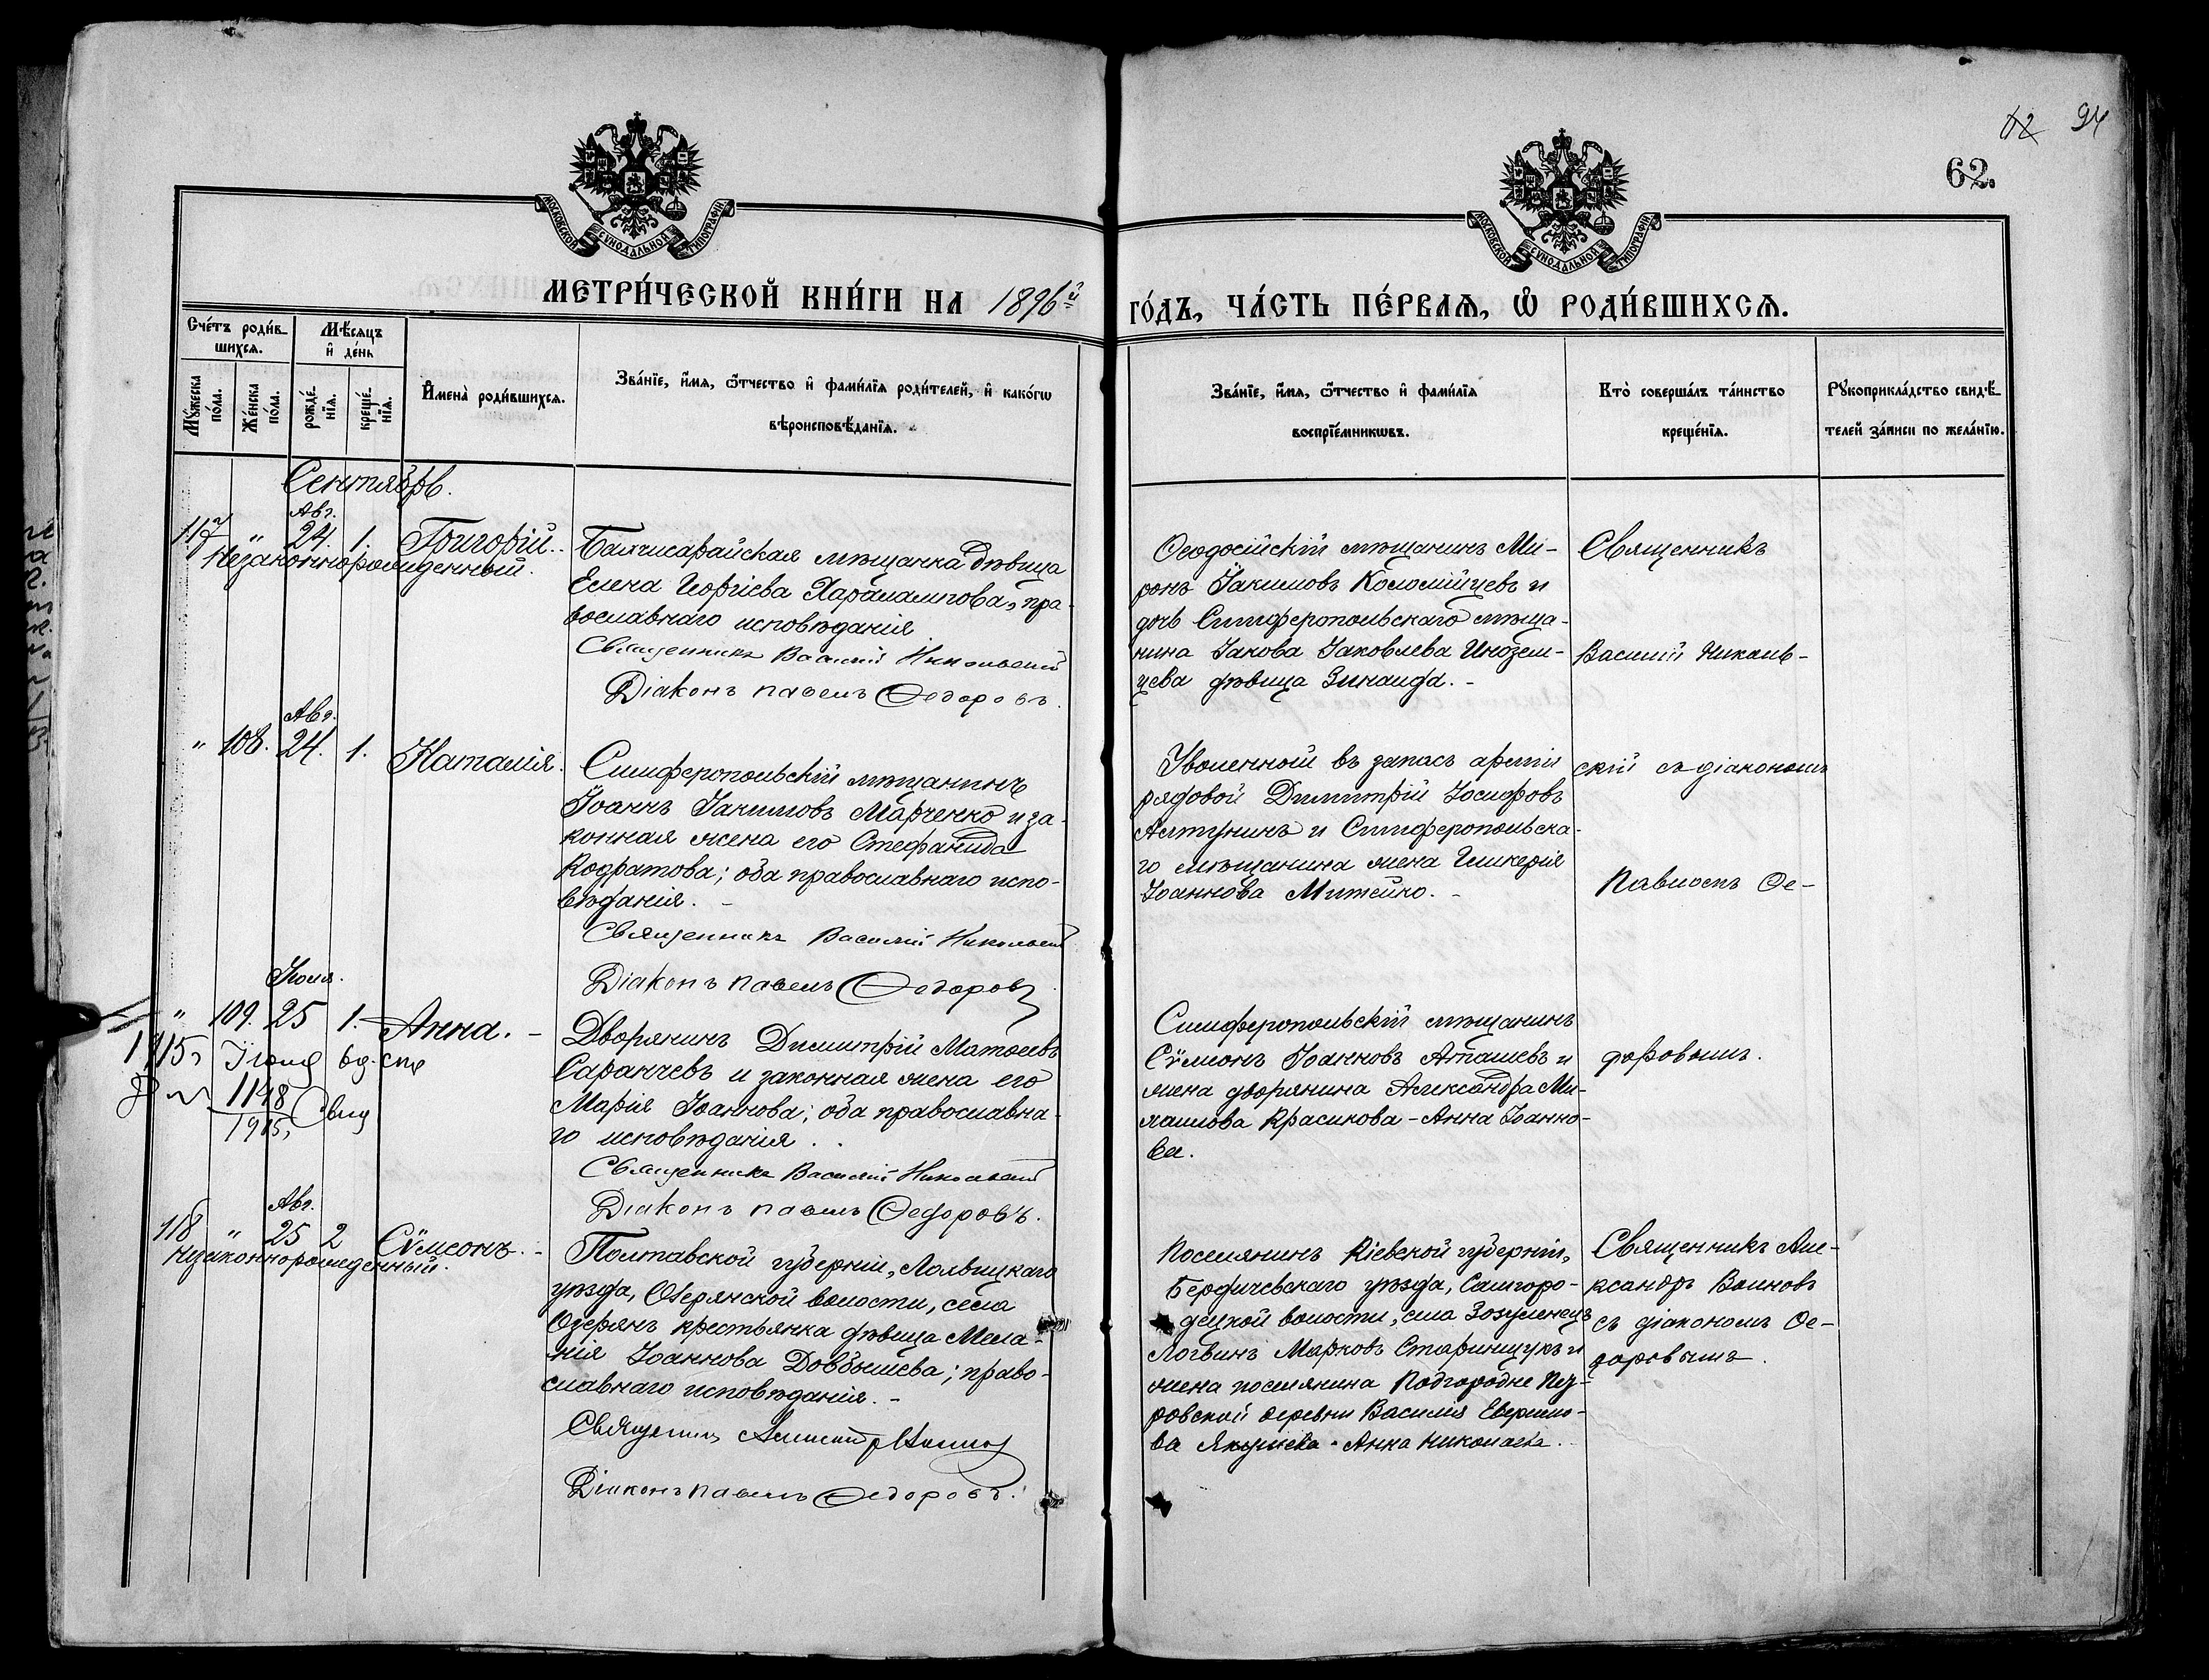 62 94
62.
МОСКОВСКОЙ СѴНОДАЛЬНОЙ ТИПОГРАФІИ
МОСКОВСКОЙ СѴНОДАЛЬНОЙ ТИПОГРАФІИ
МЕТРИ́ЧЕСКОЙ КНИ́ГИ НА 1896й ГО́ДЪ, ЧА́СТЬ ПЕ́РВАѦ, Ѡ РОДИ́ВШИХСѦ.
Сче́тъ роди́в-
шихсѧ.
Мѣ́сѧцъ
и҆ де́нь
Мꙋ́жеска по́ла.
Же́нска по́ла.
рожде́-нїѧ.
креще́-нїѧ.
И҆мена̀ роди́вшихсѧ.
Зва́нїе, и҆́мѧ, ѻ҆́тчество и҆ фами́лїѧ роди́телей, и҆ како́гѡ
вѣроисповѣ́данїѧ.
Зва́нїе, и҆́мѧ, ѻ҆́тчество и҆ фами́лїѧ
воспрїе́мникѡвъ.
Кто̀ соверша́лъ та́инство
креще́нїѧ.
Рꙋкоприкла́дство свидѣ́-
телей за́писи по жела́нїю.
Сентябрь.
Авг.
117 " 24. 1. Григорій.
Незаконнорожденный.
Бахчисарайская мѣщанка дѣвица
Елена Георгіева Харалампова, пра-
вославнаго исповѣданія
Священникъ Василій Никольскій
Діаконъ Павелъ Ѳедоровъ.
Ѳеодосійскій мѣщанинъ Ми-
ронъ Іакимовъ Коломійцевъ и
дочь Симферопольскаго мѣща-
нина Іакова Іаковлева Инозем-
цева дѣвица Зинаида. -
Священникъ
Василій Николь-
Авг.
" 108. 24. 1. Наталія.
Симферопольскій мѣщанинъ
Іоаннъ Іакимовъ Марченко и за-
конная жена его Стефанида
Кодратова; оба православнаго испо-
вѣданія. -
Священникъ Василій Никольскій
Діаконъ Павелъ Ѳедоровъ
Уволенной въ запасъ арміи
рядовой Димитрій Іосифовъ
Алтунинъ и Симферопольска-
го мѣщанина жена Гликерія
Іоаннова Митейко. -
скій съ діакономъ
Павломъ Ѳе-
Іюля.
" 109. 25 1. Анна. -
1915 Іюня
1148
1915
Дворянинъ Димитрій Матѳеевъ
Саранчевъ и законная жена его
Марія Іоаннова; оба православна-
го исповѣданія.
Священникъ Василій Никольскій
Діаконъ Павелъ Ѳедоровъ.
Симферопольскій мѣщанинъ
Сѵмеонъ Іоанновъ Аташевъ и
жена дворянина Александра Ми-
хаилова Красикова - Анна Іоанно-
ва.
доровымъ.
Авг.
118 " 25 2 Сѵмеонъ. -
незаконнорожденный.
Полтавской губерніи, Лохвицкаго
уѣзда, Озерянской волости, села
Озерянъ крестьянка дѣвица Мела-
нія Іоаннова Довбышева; право-
славнаго исповѣданія. -
Священникъ
Діаконъ Павелъ Ѳедоровъ.
Поселянинъ Кіевской губерніи,
Бердичевскаго уѣзда, Самгоро-
децкой волости, села Зозуленецъ
Логвинъ Марковъ Старинщукъ и
жена поселянина Подгородне Пет-
ровской деревни Василія
ва Якушева - Анна Николаева.
Священникъ Але-
ксандръ Воиновъ
съ діакономъ Ѳе-
доровымъ.